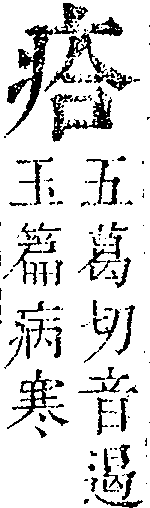 五葛切音遏
玉篇病寒、